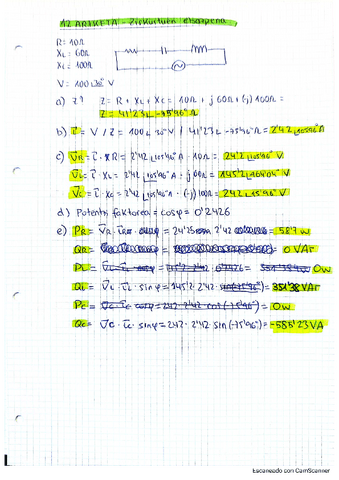 12 ARIKETA - Zirkuituen ebazpena
R= 10Ω
XL= 60Ω
XC= 100Ω
V= 100∟30° V
a) Z? Z = R + XL + XC = 10Ω + j 60Ω + (-j) 100Ω =
Z = 41'23∟-75'96° Ω
b) I = V / Z = 100∟30° V / 41'23∟-75'96° Ω = 2'42∟105'96° A
c) VR = I · XR = 2'42∟105'96° A · 10Ω = 24'2∟105'96° V
VL = I · XL = 2'42∟105'96° A · j 60Ω = 145'2∟ V
VC = I · XC = 2'42∟105'96° A · (-j) 100Ω = 242∟15'96° V
d) Potentzi faktorea = cosφ = 0'2426
e) PR = VR · = 2'42 = 58'7 W
QR = = 0 VAr
PL = VL · IL cosφ = 0'2426 = 0w
QL = VL · IL · sinφ = 145'2 · 2'42 = 351'38 VAr
PC = VC · IC cosφ = 242 · 2'42 cos(-75'96°) = 0w
QC = VC · IC · sinφ = 242 · 2'42 sin(-75'96°) = -585'23 VA
Escaneado con CamScanner